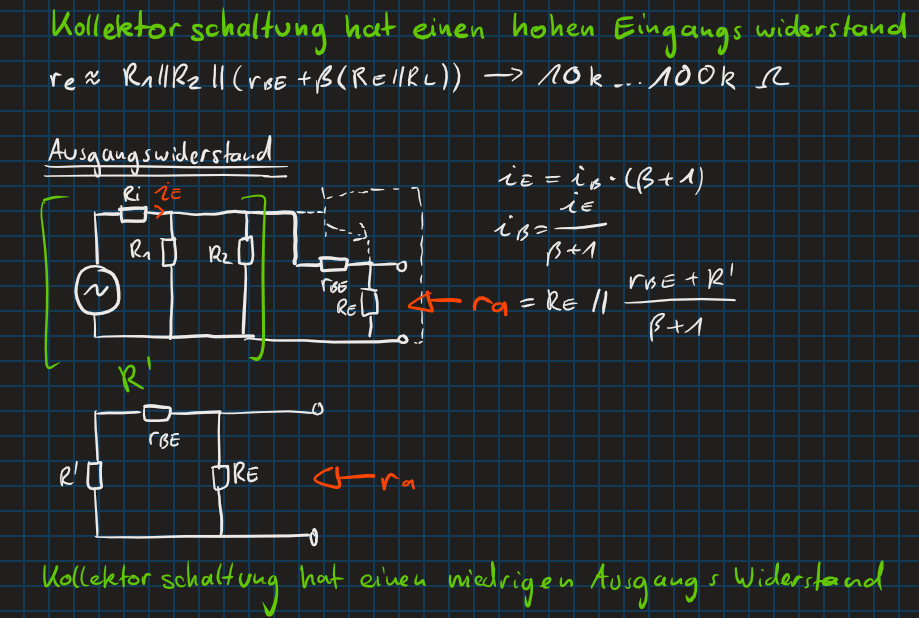 Kollektorschaltung hat einen hohen Eingangswiderstand
re ≈ R1||R2||(rBE+β(RE||RL)) → 10k...100k Ω
Ausgangswiderstand
Ri iE
iE = iB·(β+1)
R1 R2
iB = iE / β+1
rBE
RE
ra = RE || rBE + R' / β+1
R'
rBE
R' RE
ra
Kollektorschaltung hat einen niedrigen Ausgangs Widerstand